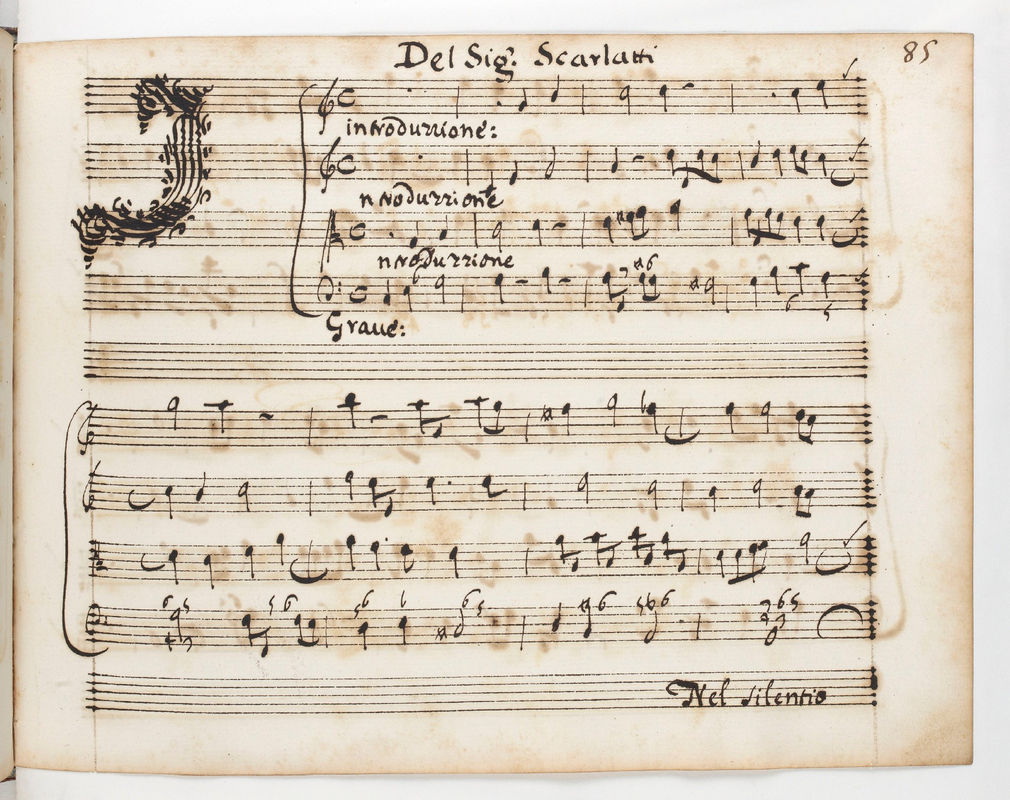 Del Sig.r Scarlatti
85
introduzzione:
ntroduzzione
ntroduzzione
Graue:
Nel silentio